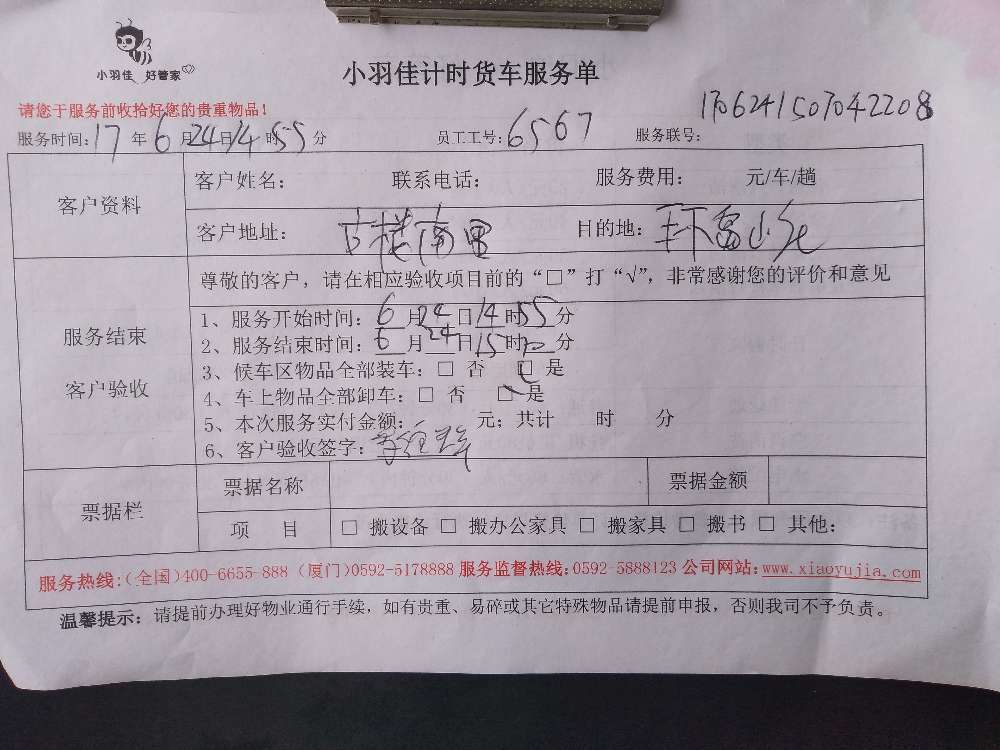 小羽佳 好管家
小羽佳计时货车服务单
请您于服务前收拾好您的贵重物品！
服务时间：17年6月24日14时55分 员工工号：6567 服务联号：1706241507042208
客户资料
客户姓名： 联系电话： 服务费用： 元/车/趟
客户地址：古楼南里 目的地：
尊敬的客户，请在相应验收项目前的“□”打“√”，非常感谢您的评价和意见
服务结束
客户验收
1、服务开始时间：6月24日14时55分
2、服务结束时间：6月24日15时分
3、候车区物品全部装车：□ 否 □ 是
4、车上物品全部卸车：□ 否 □ 是
5、本次服务实付金额： 元；共计 时 分
6、客户验收签字：
票据栏
票据名称 票据金额
项 目 □ 搬设备 □ 搬办公家具 □ 搬家具 □ 搬书 □ 其他：
服务热线：（全国）400-6655-888（厦门）0592-5178888 服务监督热线：0592-5888123 公司网站：www.xiaoyujia.com
温馨提示：请提前办理好物业通行手续，如有贵重、易碎或其它特殊物品请提前申报，否则我司不予负责。